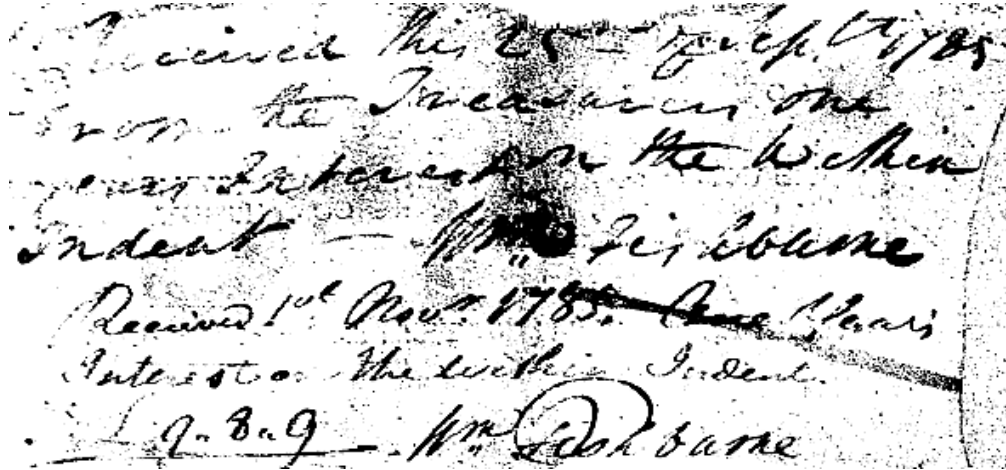 Received this 25th of Sept. 1785
from the Treasurers one
years Interest on the within
Indent — Wm. Fishbourne
Received 1st Novr. 1785. One Years
Interest on the within Indent.
£ 9.. 8.. 9 Wm Fishbourne